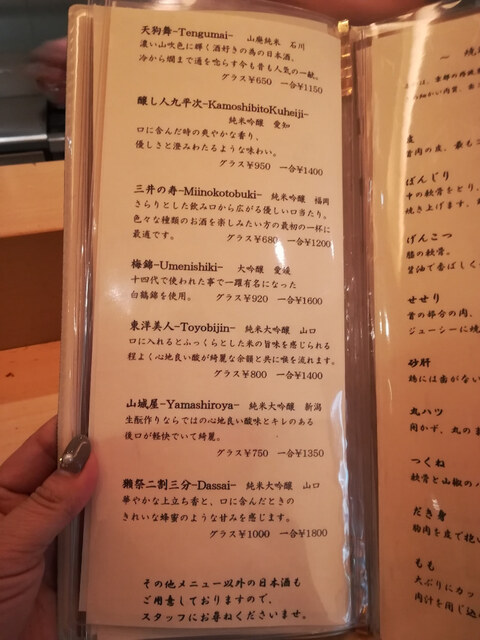 天狗舞-Tengumai- 山廃純米 石川
濃い山吹色に輝く酒好きの為の日本酒。
冷から燗まで通を唸らす今も昔も人気の一献。
グラス¥650 一合¥1150
醸し人九平次-KamoshibitoKuheiji-
純米吟醸 愛知
口に含んだ時の爽やかな香り、
優しさと澄みわたるような味わい。
グラス¥950 一合¥1400
三井の寿-Miinokotobuki- 純米吟醸 福岡
さらりとした飲み口から広がる優しい口当たり。
色々な種類のお酒を楽しみたい方の最初の一杯に
最適です。 グラス¥680 一合¥1200
梅錦-Umenishiki- 大吟醸 愛媛
十四代で使われた事で一躍有名になった
白鶴錦を使用。 グラス¥920 一合¥1600
東洋美人-Toyobijin- 純米大吟醸 山口
口に入れるとふっくらとした米の旨味を感じられる
程よく心地良い酸が綺麗な余韻と共に喉を流れます。
グラス¥800 一合¥1400
山城屋-Yamashiroya- 純米大吟醸 新潟
生酛作りならではの心地良い酸味とキレのある
後口が軽快でいて綺麗。
グラス¥750 一合¥1350
獺祭二割三分-Dassai- 純米大吟醸 山口
華やかな上立ち香と、口に含んだときの
きれいな蜂蜜のような甘みを感じます。
グラス¥1000 一合¥1800
その他メニュー以外の日本酒も
ご用意しておりますので、
スタッフにお尋ねくださいませ。
～ 焼
皮
首肉の皮。最も
ぼんじり
中の軟骨をとり、
焼き上げます。
げんこつ
膝の軟骨。
醤油で香ばしく
せせり
首の部分の肉。
ジューシーに焼
砂肝
鶏には歯がない
丸ハツ
開かず、丸のま
つくね
軟骨と山椒の
だき身
胸肉を皮で抱い
もも
大ぶりにカッ
肉汁を閉じ込